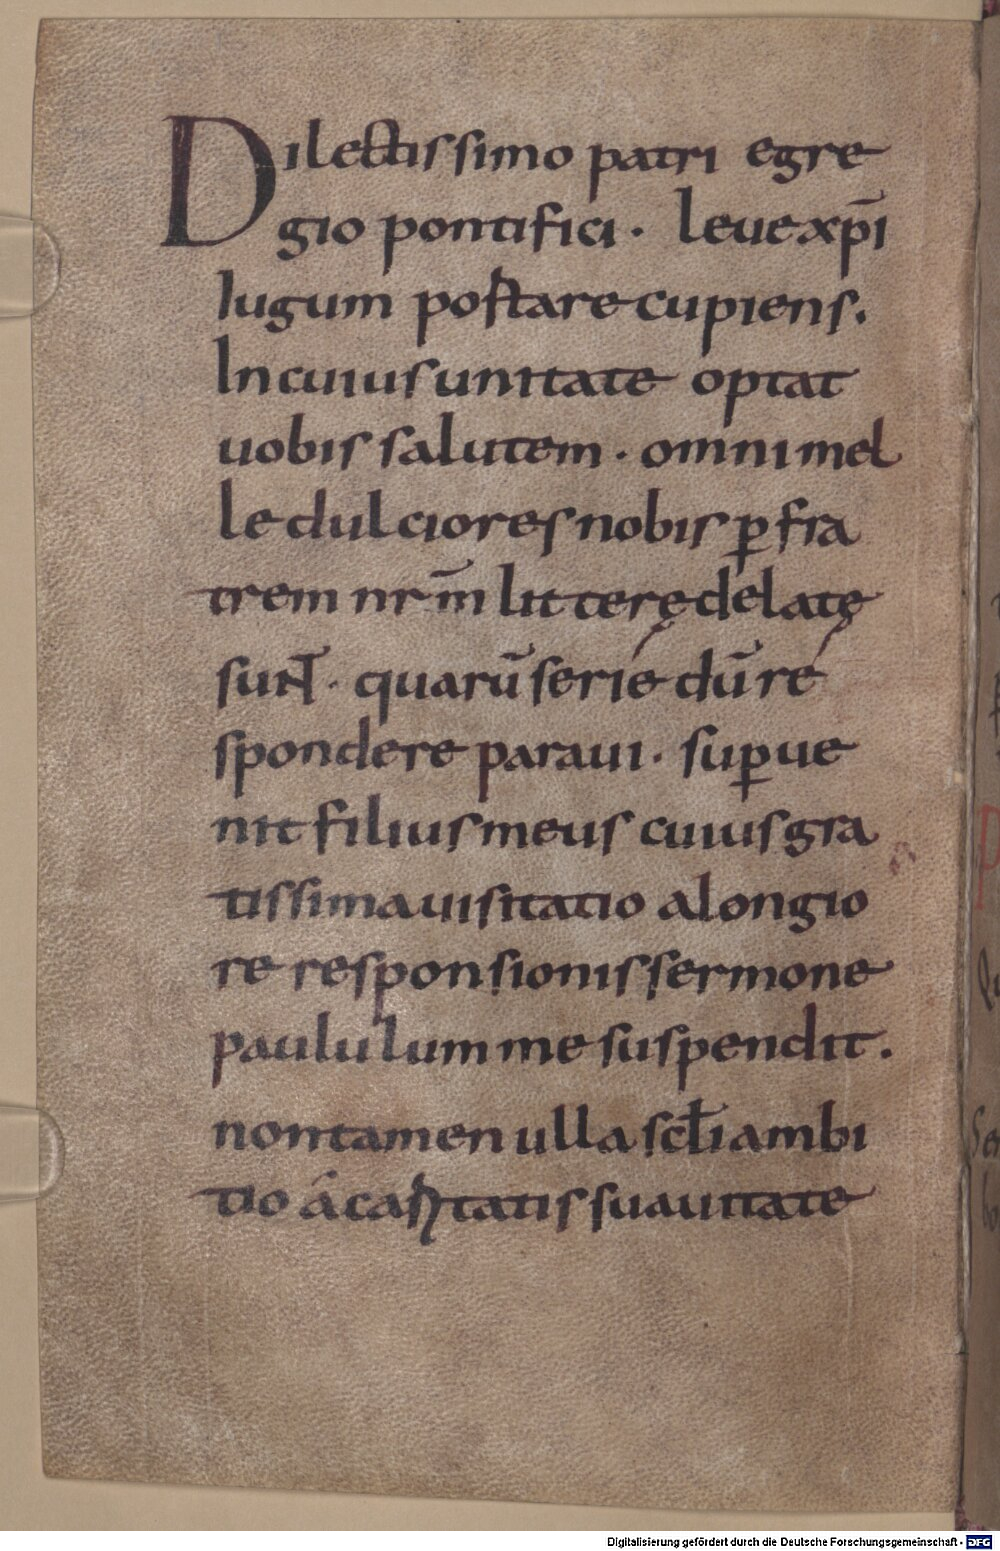 Dilectissimo patri egre
gio pontifici · leue xp̄i
Iugum portare cupiens.
In cuius unitate optat
uobis salutem · omni mel
le dulciores nobis ꝑ fra
trem nr̄m litterę delatę
sunt̄ · quarū seriē dū re
spondere paraui · suꝑue
nit filius meus cuius gra
tissima uisitatio a longio
re responsionis sermone
paululum me suspendit.
non tamen ulla scl̄i ambi
tio á caritatis suauitate
Digitalisierung gefördert durch die Deutsche Forschungsgemeinschaft - DFG